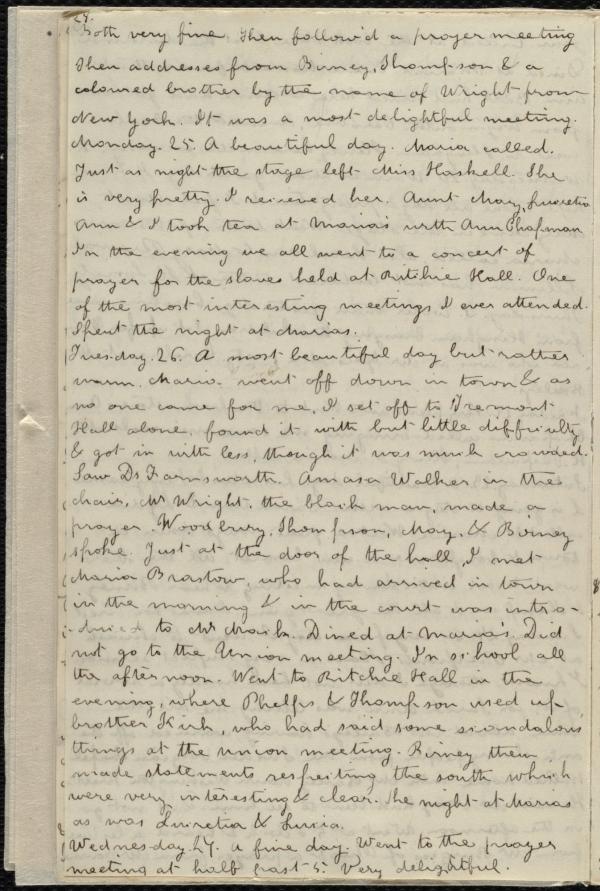 24.
Both very fine. Then follow'd a prayer meeting
Then addresses from Birney, Thompson & a
coloured brother by the name of Wright from
New York. It was a most delightful meeting.
Monday. 25. A beautiful day. Maria called.
Just as night the stage left Miss Haskell. She
is very pretty. I received her. Aunt Mary, Lucretia
Ann & I took tea at Maria's with Ann Chapman
In the evening we all went to a concert of
prayer for the slaves held at Ritchie Hall. One
of the most interesting meetings I ever attended.
Spent the night at Marias.
Tuesday. 26. A most beautiful day but rather
warm. Maria went off down in town & as
no one came for me, I set off to Tremont
Hall alone, found it with but little difficulty
& got in with less, though it was much crowded.
Saw Dr Farnsworth. Amasa Walker in the
chair, Mr Wright, the black man, made a
prayer. Woodbury, Thompson, May, & Birney
spoke. Just at the door of the hall, I met
Maria Brastow, who had arrived in town
in the morning & in the court was intro-
duced to Mr Mack. Dined at Maria's. Did
not go to the Union meeting. In school all
the afternoon. Went to Ritchie Hall in the
evening, where Phelps & Thompson used up
brother Kirk, who had said some scandalous
things at the union meeting. Birney then
made statements respecting the south which
were very interesting & clear. The night at Marias
as was Lucretia & Lucia.
Wednesday. 27. a fine day. Went to the prayer
meeting at half past 5. Very delightful.